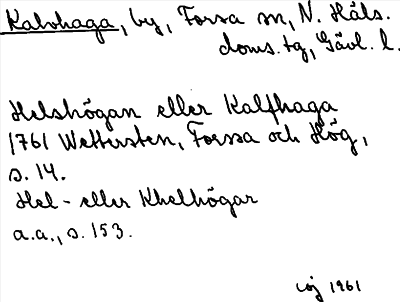 Kalvhaga, by, Forsa sn, N. Häls.
doms. tg, Gävl. l.
Helshögan eller Kalfhaga
1761 Wettersten, Forssa och Hög,
s. 14.
Hel- eller Khelhögar
a.a., s. 153.
1961